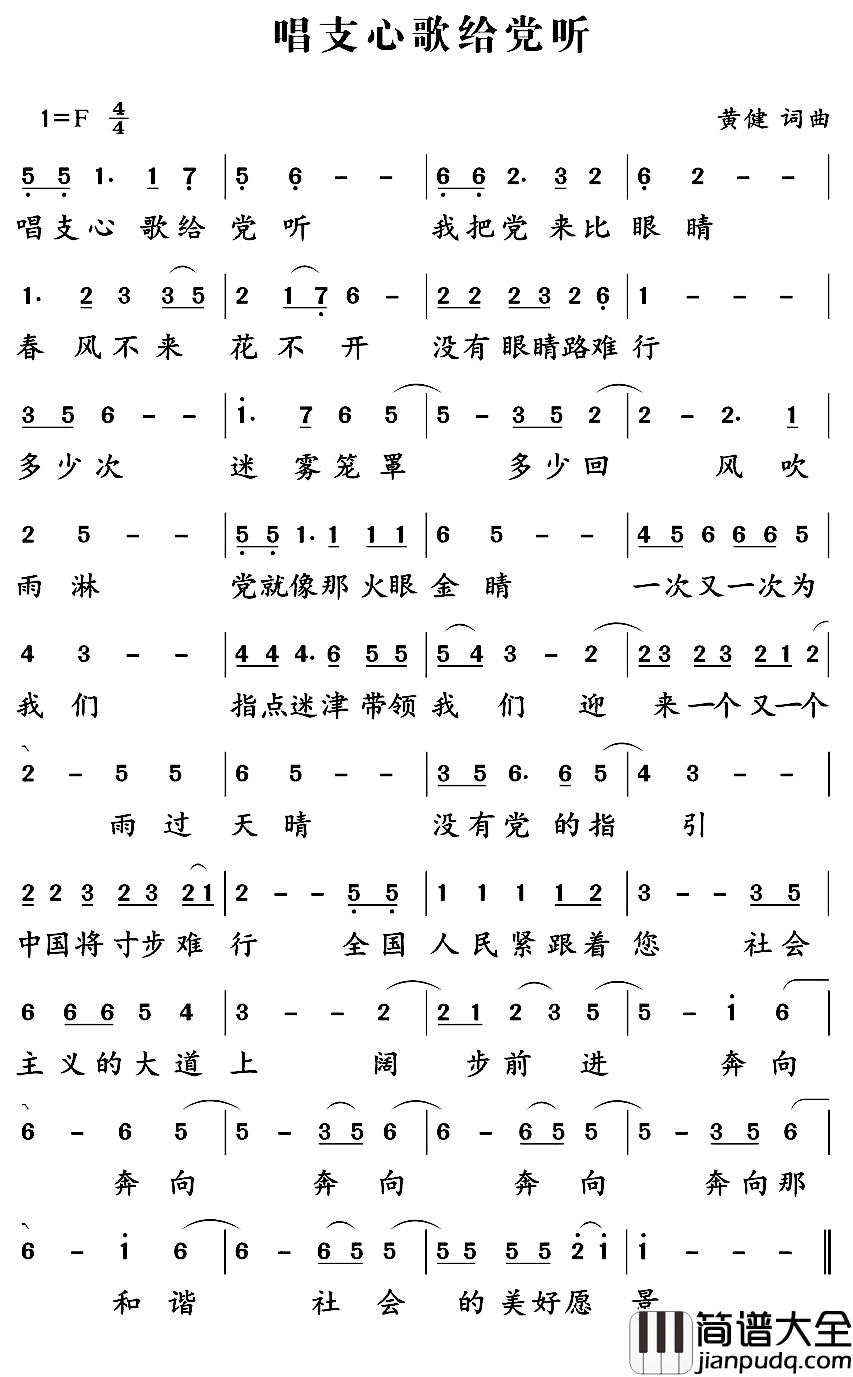 唱支心歌给党听
1=F 4/4 黄健 词曲
5 5 1. 1 7 | 5 6 - - | 6 6 2. 3 2 | 6 2 - - |
唱支心 歌给 党 听 我把党 来比 眼 睛
1. 2 3 3 5 | 2 1 7 6 - | 2 2 2 3 2 6 | 1 - - - |
春 风不 来 花 不 开 没有 眼睛路难 行
3 5 6 - - | 1. 7 6 5 | 5 - 3 5 2 | 2 - 2. 1 |
多少次 迷 雾笼 罩 多少回 风 吹
2 5 - - | 5 5 1. 1 1 1 | 6 5 - - | 4 5 6 6 6 5 |
雨 淋 党就像那 火眼 金 睛 一次又一次为
4 3 - - | 4 4 4. 6 5 5 | 5 4 3 - 2 | 2 3 2 3 2 1 2 |
我 们 指点迷津 带领 我 们 迎 来 一个 又一个
2 - 5 5 | 6 5 - - | 3 5 6. 6 5 | 4 3 - - |
雨 过 天 晴 没有党 的指 引
2 2 3 2 3 2 1 | 2 - - 5 5 | 1 1 1 1 2 | 3 - - 3 5 |
中国将 寸步 难 行 全国 人民紧跟着 您 社会
6 6 6 5 4 | 3 - - 2 | 2 1 2 3 5 | 5 - 1 6 |
主义的大道 上 阔 步前 进 奔 向
6 - 6 5 | 5 - 3 5 6 | 6 - 6 5 5 | 5 - 3 5 6 |
奔 向 奔 向 奔 向 奔向那
6 - 1 6 | 6 - 6 5 5 | 5 5 5 5 2 1 | 1 - - - ‖
和 谐 社 会 的 美好愿 景
简谱大全
jianpudq.com